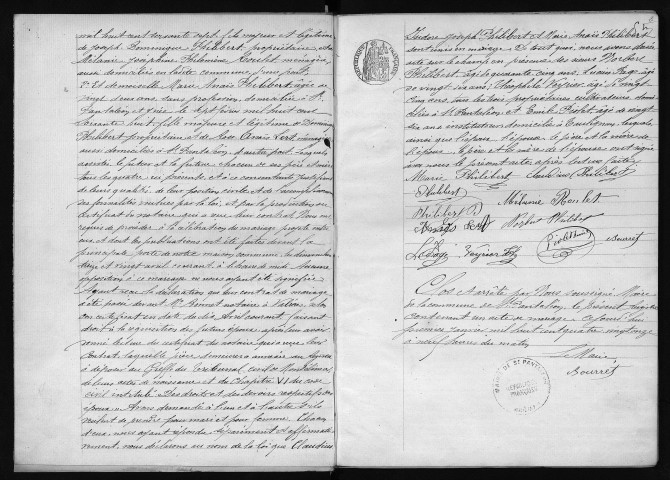 mil huit cent soixante sept, fils majeur et légitime
de Joseph Dominique Philibert propriétaire et de
Mélanie Joséphine Philomène Roulet ménagère,
aussi domiciliés en cette commune d'une part.
2° Et demoiselle Marie Anaïs Philibert âgée de
vingt deux ans, sans profession, domiciliée à St
Pantaléon et née le sept
soixante huit fille majeure et légitime de Dominique
Philibert propriétaire et de Rose Anaïs
aussi domiciliés à St Pantaléon, d'autre part. Lesquels
assistés le futur et la future chacun de ses père et mère
tous les quatre ici présents et ce consentants justifiant
de leurs qualités, de leur position civile et de l'accomplissement
des formalités voulues par la loi, et par la présentation du
certificat du notaire qui a reçu leur contrat Nous ont
requis de procéder à la célébration du mariage projeté entre
eux et dont les publications ont été faites devant la
principale porte de notre maison commune les dimanches
treize et vingt avril courant à l'heure de midi. Aucune
opposition à ce mariage ne nous ayant été signifiée
Ayant reçu la déclaration que leur contrat de mariage
a été passé devant Me Benoit notaire à Valréas, selon
son certificat en date du dix Avril courant; faisant
droit à la réquisition des futurs époux après leur avoir
donné lecture du certificat du notaire qui a reçu leur
contrat, laquelle pièce demeurera annexée au
à déposer au Greffe du Tribunal civil de Montélimar
de leurs actes de naissance et du Chapitre VI du code
civil intitulé Des droits et des devoirs respectifs des
époux. Avons demandé à l'un et à l'autre s'ils
veulent se prendre pour mari et pour femme. Chacun
d'eux nous ayant répondu séparément et affirmati-
vement, nous déclarons au nom de la loi que Claudius
Isidore Joseph Philibert et Marie Anaïs Philibert
sont unis en mariage. De tout quoi, nous avons dressé
acte sur le champ en présence des sieurs Norbert
Philibert âgé de quarante cinq ans,
de vingt six ans, Veyrier âgé de vingt
cinq ans, tous les trois propriétaires cultivateurs domi-
ciliés à St Pantaléon et Emile Piolet âgé de vingt
six ans domicilié à lesquels
ainsi que l'époux, l'épouse, le père et la mère de
l'époux, le père et la mère de l'épouse ont signé
avec nous le présent acte après lecture faite.
Marie Philibert Claudius Philibert
Philibert Mélanie Roulet
Philibert D
Anaïs Norbert Philibert
Veyrier Piolet Emile Bourret
Clos et arrêté par Nous soussigné Maire
de la commune de St Pantaléon, le présent registre
contenant un acte de mariage, ce jourd'hui
premier janvier mil huit cent quatre vingt onze
à neuf heures du matin.
Le Maire
Bourret
MAIRIE DE ST PANTALÉON
RÉPUBLIQUE
FRANÇAISE